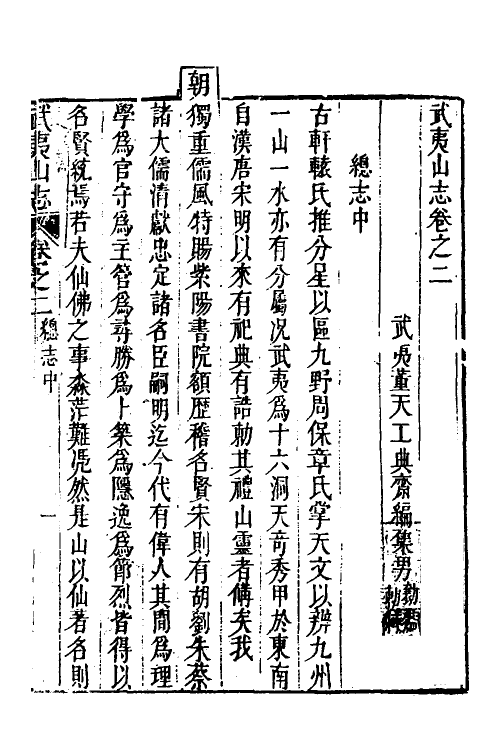 武夷山志卷之二
武夷董天工典齋編集男
總志中
古軒轅氏推分星以區九野周保章氏掌天文以辨九州
一山一水亦有分屬况武夷為十六洞天奇秀甲於東南
自漢唐宋明以來有祀典有誥勅其禮山靈者備矣我
朝獨重儒風特賜紫陽書院額歷稽名賢宋則有胡劉朱蔡
諸大儒清獻忠定諸名臣嗣明迄今代有偉人其間為理
學為官守為主管為尋勝為卜築為隱逸為節烈皆得以
名賢統焉若夫仙佛之事淼茫難凭然是山以仙著名則
武夷山志
卷之二
總志中
一